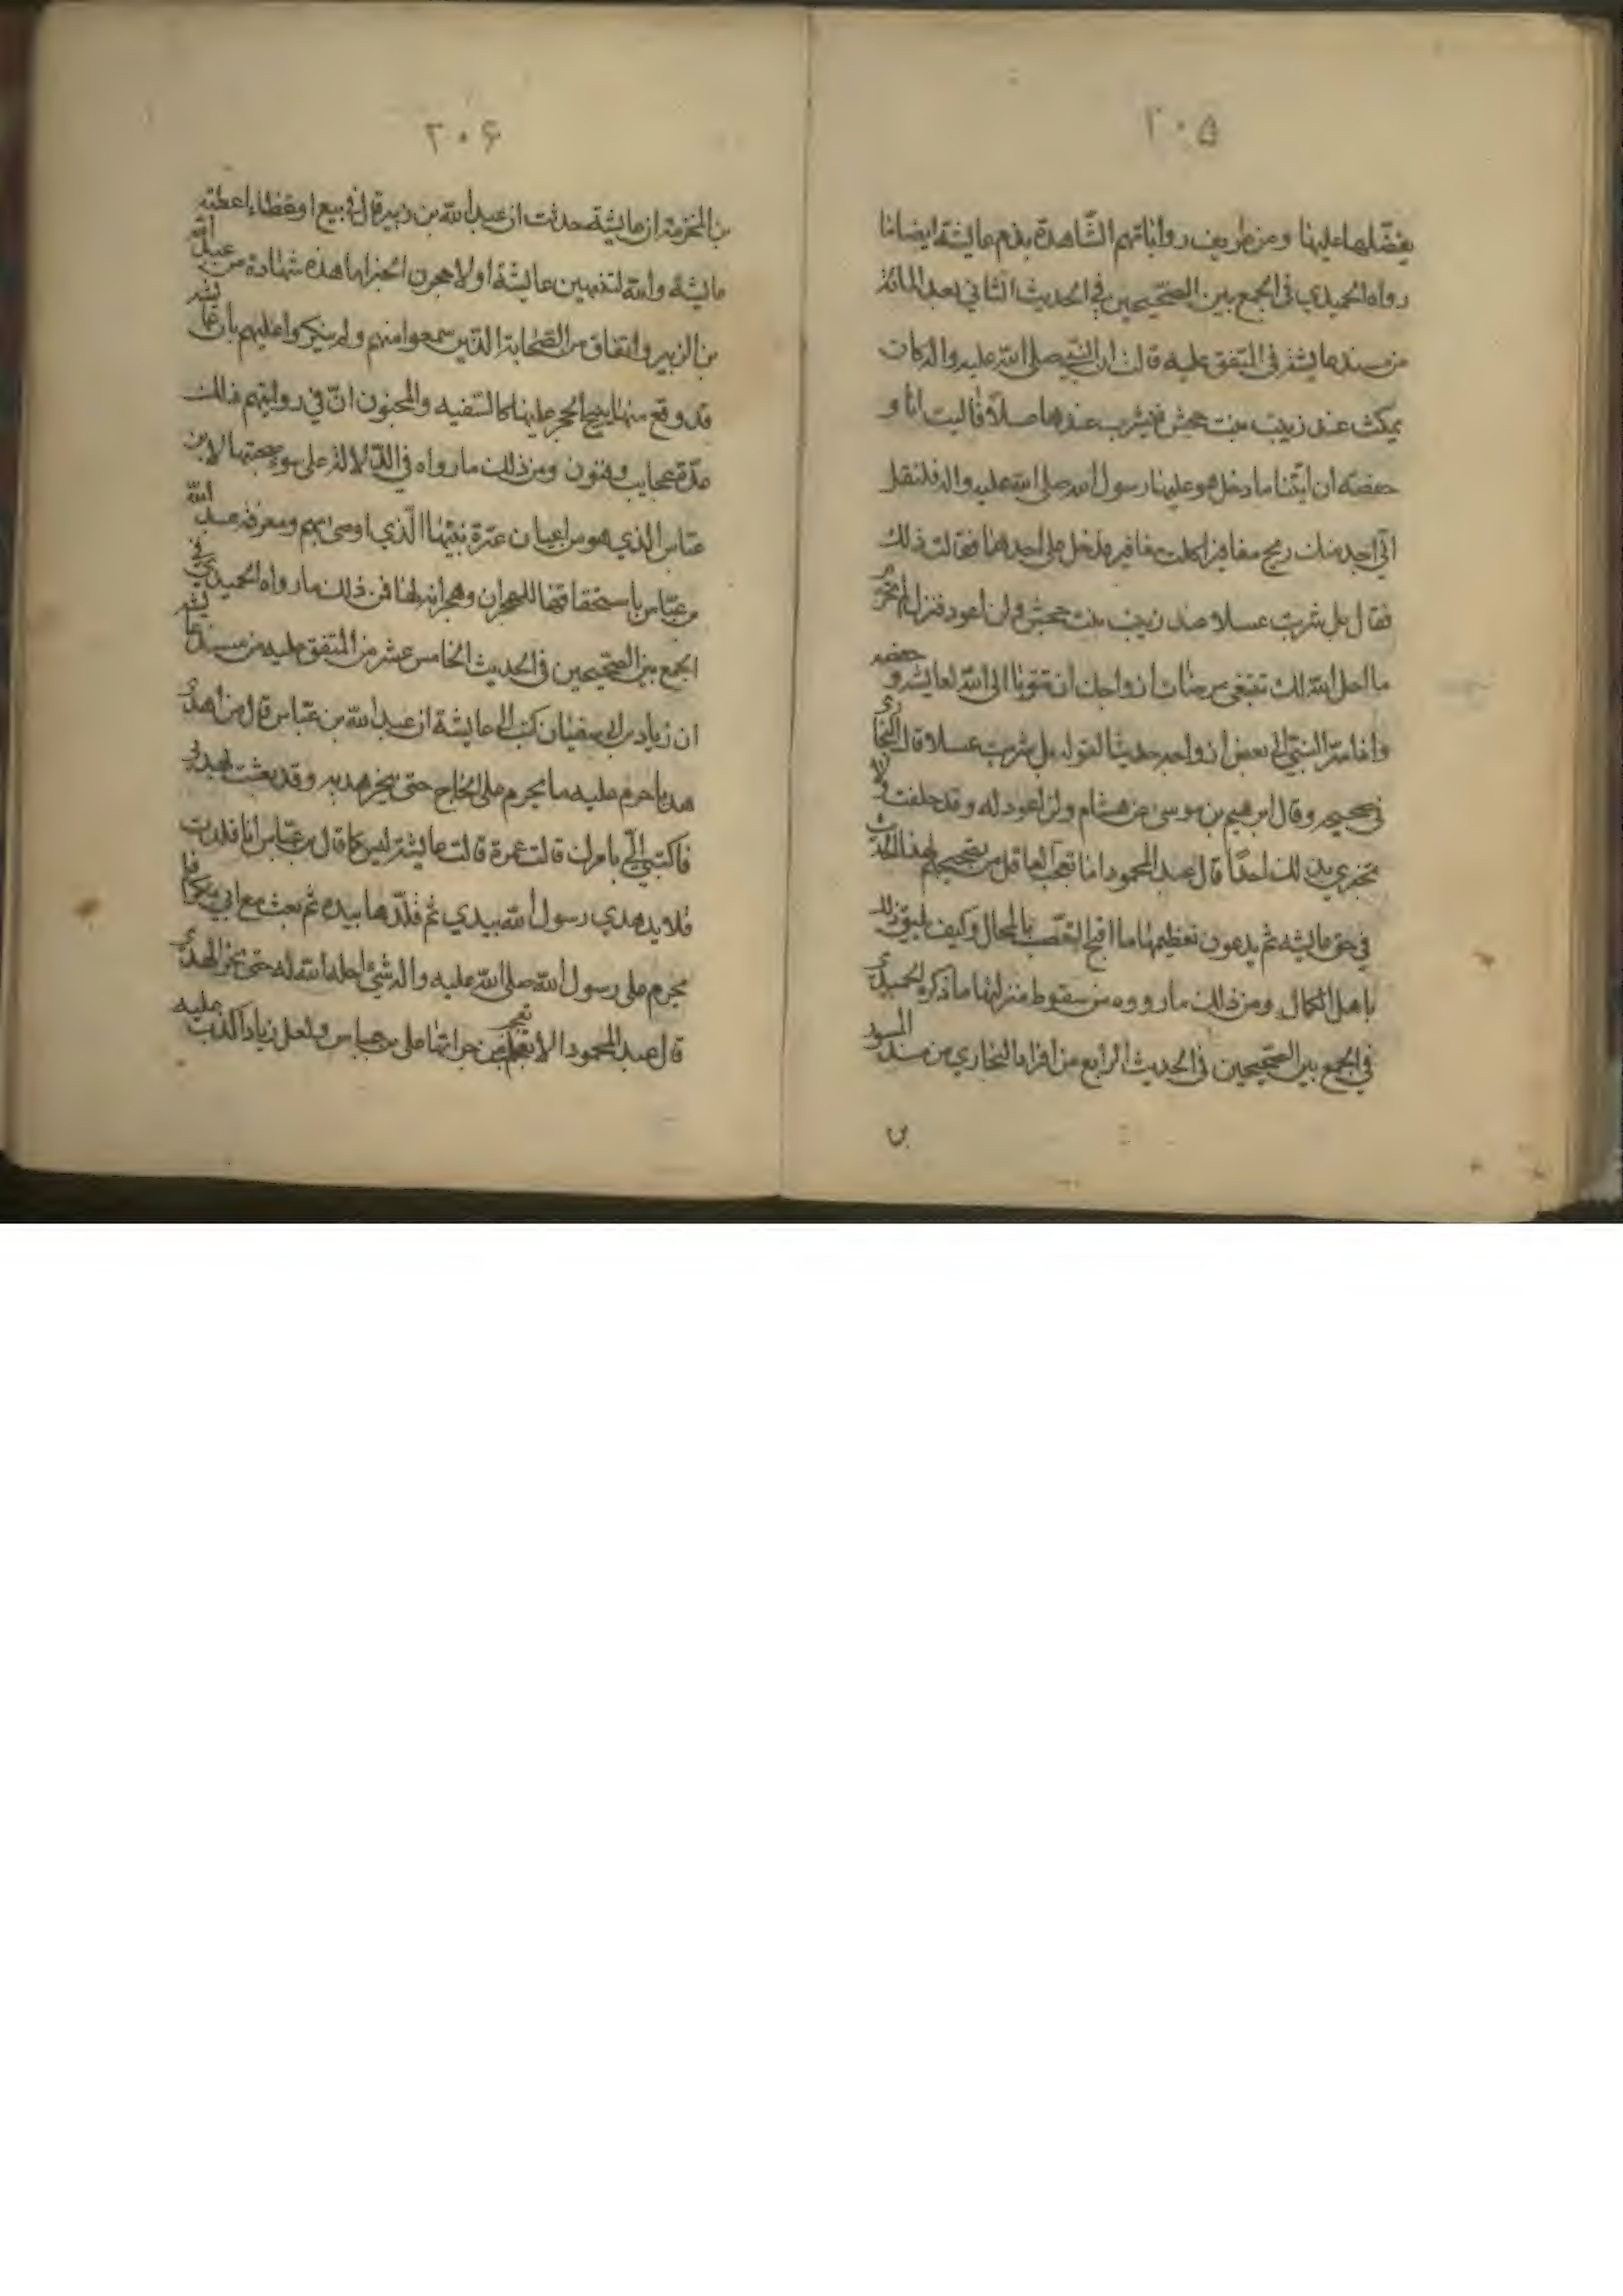 ٢٠۵
يفضّلها علينا ومن طريف رواياتهم الشاهدة بذم عايشة ايضا ما
رواه الحميدي في الجمع بين الصحيحين في الحديث الثاني بعد المائة
من مسند عايشه في المتفق عليه قالت ان النبي صلى الله عليه واله كان
يمكث عند زينب بنت جحش فيشرب عندها عسلا قاليت انا و
حفصة ان ايتنا ما دخل هو علينا رسول الله صلى الله عليه واله فلنقل
اني اجد منك ريح مغافير اكلت مغافير فدخل على احدهما فقالت ذلك
فقال بل شربت عسلا عند زينب بنت جحش ولن اعود فنزل لم تحرم
ما احل الله لك تبتغي مرضات ازواجك ان تتوبا الى الله لعايشه و حفصه
واذ اسرّ النبي الى بعض ازواجه حديثا لقوله بل شربت عسلا قال البخاري
في صحيحه وقال ابرهيم بن موسى عن هشام ولن اعود له وقد حلفت فلا
تخبري بذلك احدًا قال عبد المحمود اما تعجب العاقل من تصحيحهم لهذا الحديث
في حق عايشه ثم يدعون تعظيمها ما اقبح التعصّب بالمحال وكيف يليق ذلك
باهل الكمال ومن ذلك ما رووه من سقوط منزلتها ما ذكره الحميدي
في الجمع بين الصحيحين في الحديث الرابع من افراد البخاري من مسند المسور
بن
٢٠۶
بن المخرمة ان عايشة حدثت ان عبد الله بن زبير قال في بيع او عطاء اعطته
عايشة والله لتنتهين عايشة او لاحجرن الخبر اما هذه شهادة من عبد الله
بن الزبير واتفاق من الصحابة الذين سمعوا منهم ولم ينكروا عليهم بان عايشه
قد وقع منها ما يبيح الحجر عليها كالسفيه والمجنون انّ في روايتهم ذلك
عدّة عجايب وفنون ومن ذلك ما رواه في الدّلالة على سوء صحبتها لابن
عبّاس الذي هو من اعيان عترة نبيّها الّذي اوصى بهم ومعرفة عبد الله
بن عبّاس باستحقاقها للهجران وهجرانه لها فمن ذلك ما رواه الحميدي في
الجمع بين الصحيحين في الحديث الخامس عشر من المتفق عليه من مسند عايشه
ان زياد بن ابي سفيان كتب الى عايشة ان عبد الله بن عبّاس قال من اهدى
هديا حرم عليه ما يحرم على الحاج حتى ينحر هديه وقد بعثت بهديي
فاكتبي الّي بامرك قالت عمرة قالت عايشة ليس كما قال بن عبّاس انا فتلت
قلايد هدي رسول الله بيدي ثم قلّدها بيده ثم بعث مع ابي بكر فلم
يحرم على رسول الله صلى الله عليه واله شئ احله الله له حتى نحر الهدي
قال عبد المحمود الا تعجب من جراتها على بن عباس ولعل زيادا كذب عليه